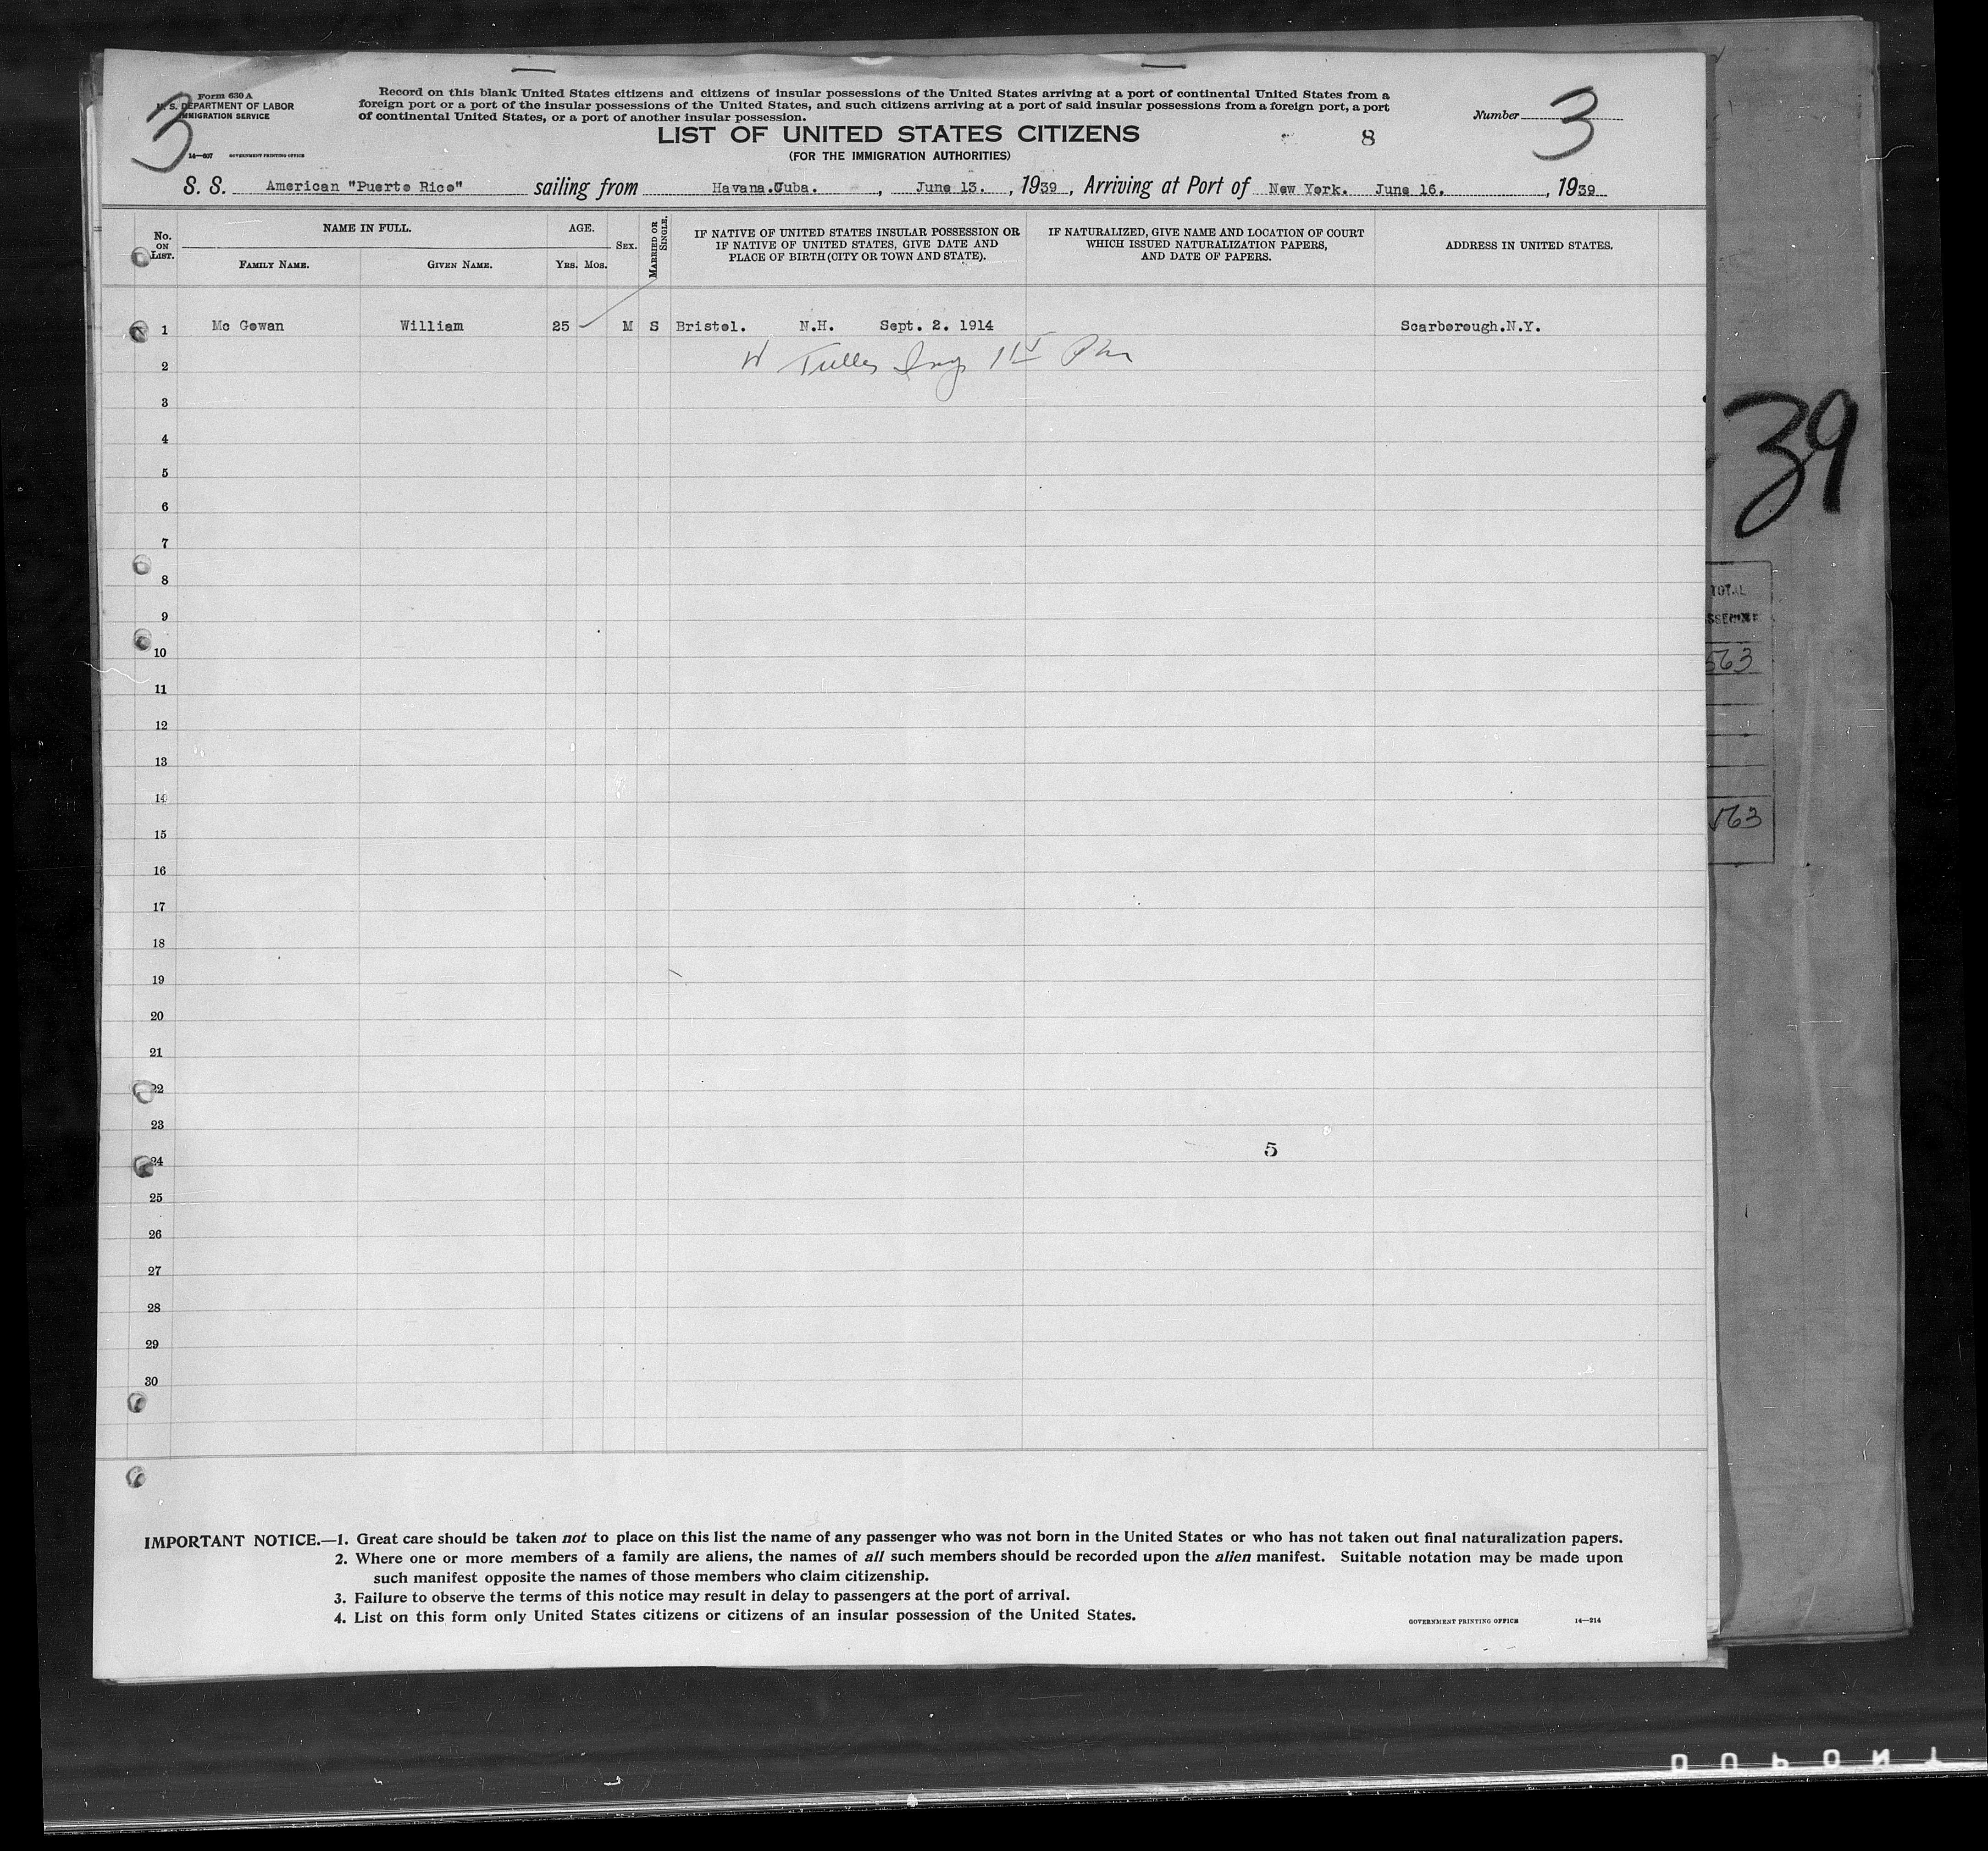 Form 630 A
U. S. DEPARTMENT OF LABOR
IMMIGRATION SERVICE
14—807 GOVERNMENT PRINTING OFFICE
3
Record on this blank United States citizens and citizens of insular possessions of the United States arriving at a port of continental United States from a
foreign port or a port of the insular possessions of the United States, and such citizens arriving at a port of said insular possessions from a foreign port, a port
of continental United States, or a port of another insular possession.
LIST OF UNITED STATES CITIZENS
(FOR THE IMMIGRATION AUTHORITIES)
8
Number 3
S. S. American "Puerto Rico" sailing from Havana.Cuba. , June 13. , 1939 , Arriving at Port of New York. June 16. , 1939
No. ON LIST. NAME IN FULL. AGE. SEX. MARRIED OR SINGLE. IF NATIVE OF UNITED STATES INSULAR POSSESSION OR IF NATIVE OF UNITED STATES, GIVE DATE AND PLACE OF BIRTH (CITY OR TOWN AND STATE). IF NATURALIZED, GIVE NAME AND LOCATION OF COURT WHICH ISSUED NATURALIZATION PAPERS, AND DATE OF PAPERS. ADDRESS IN UNITED STATES.
FAMILY NAME. GIVEN NAME. YRS. MOS.
1 Mc Gowan William 25 M S Bristol. N.H. Sept. 2. 1914 Scarborough.N.Y.
2
3
4
5
6
7
8
9
10
11
12
13
14
15
16
17
18
19
20
21
22
23
5
24
25
26
27
28
29
30
39
TOTAL
563
563
IMPORTANT NOTICE.—1. Great care should be taken not to place on this list the name of any passenger who was not born in the United States or who has not taken out final naturalization papers.
2. Where one or more members of a family are aliens, the names of all such members should be recorded upon the alien manifest. Suitable notation may be made upon
such manifest opposite the names of those members who claim citizenship.
3. Failure to observe the terms of this notice may result in delay to passengers at the port of arrival.
4. List on this form only United States citizens or citizens of an insular possession of the United States.
GOVERNMENT PRINTING OFFICE 14—214